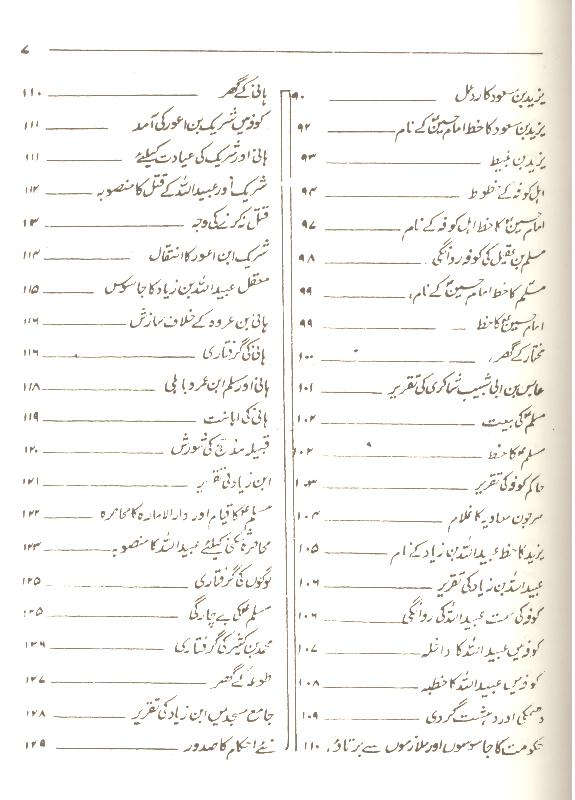 ۷
یزید بن مسعود کا ردعمل ۹۰
یزید بن مسعود کا خط امام حسینؑ کے نام ۹۲
یزید بن نبیط ۹۳
اہل کوفہ کے خطوط ۹۴
امام حسینؑ کا خط اہل کوفہ کے نام ۹۷
مسلم بن عقیل کی کوفہ روانگی ۹۸
مسلم کا خط امام حسینؑ کے نام، ۹۹
امام حسینؑ کا خط ۹۹
مختار کے گھر، ۱۰۰
عابس بن ابی شبیب شاکری کی تقریر ۱۰۱
مسلمؑ کی بیعت ۱۰۲
مسلمؑ کا خط ۱۰۲
حاکم کوفہ کی تقریر ۱۰۳
سرجون معاویہ کا غلام ۱۰۴
یزید کا خط عبیداللہ بن زیاد کے نام ۱۰۵
عبیداللہ بن زیاد کی تقریر ۱۰۶
کوفہ کی سمت عبیداللہ کی روانگی ۱۰۶
کوفہ میں عبیداللہ کا داخلہ ۱۰۷
کوفہ میں عبیداللہ کا خطبہ ۱۰۸
دھمکی اور دہشت گردی ۱۰۹
حکومت کا جاسوسوں اور ملازموں سے برتاؤ، ۱۱۰
ہانی کے گھر ۱۱۰
کوفہ میں شریک بن اعور کی آمد ۱۱۱
ہانی اور شریک کی عیادت کیلئے ۱۱۱
شریک اور عبیداللہ کے قتل کا منصوبہ ۱۱۲
قتل نہ کرنے کی وجہ ۱۱۳
شریک ابن اعور کا انتقال ۱۱۴
معقل عبیداللہ بن زیاد کا جاسوس ۱۱۵
ہانی بن عروہ کے خلاف سازش ۱۱۶
ہانی کی گرفتاری ۱۱۶
ہانی اور مسلم ابن عمرو باہلی ۱۱۸
ہانی کی اہانت ۱۱۹
قبیلہ مذحج کی شورش ۱۲۰
ابن زیاد کی تقریر ۱۲۱
مسلمؑ کا قیام اور دارالامارہ کا محاصرہ ۱۲۲
محاصرہ شکنی کیلئے عبیداللہ کا منصوبہ ۱۲۳
لوگوں کی گرفتاری ۱۲۵
مسلمؑ کی بے چارگی ۱۲۵
محمد بن کثیر کی گرفتاری ۱۲۶
طوعہ کے گھر ۱۲۷
جامع مسجد میں ابن زیاد کی تقریر ۱۲۸
نئے احکام کا صدور ۱۲۹